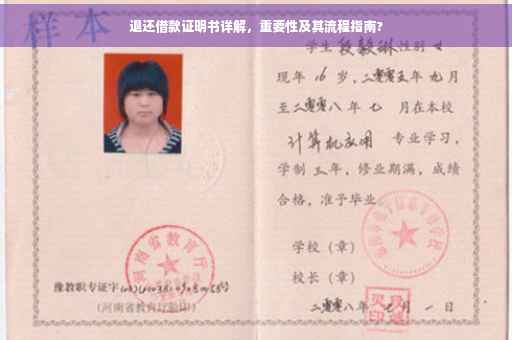 退还借款证明书详解，重要性及其流程指南?
样本
学生段毅琳性别女
现年16岁，二零零五年九月
至二零零八年七月在本校
计算机应用 专业学习，
学制三年，修业期满，成绩
合格，准予毕业。
学校（章）
校长（章）
二零零八年 月一日
河南省教育厅
豫教职专证字
（河南省教育厅验印）